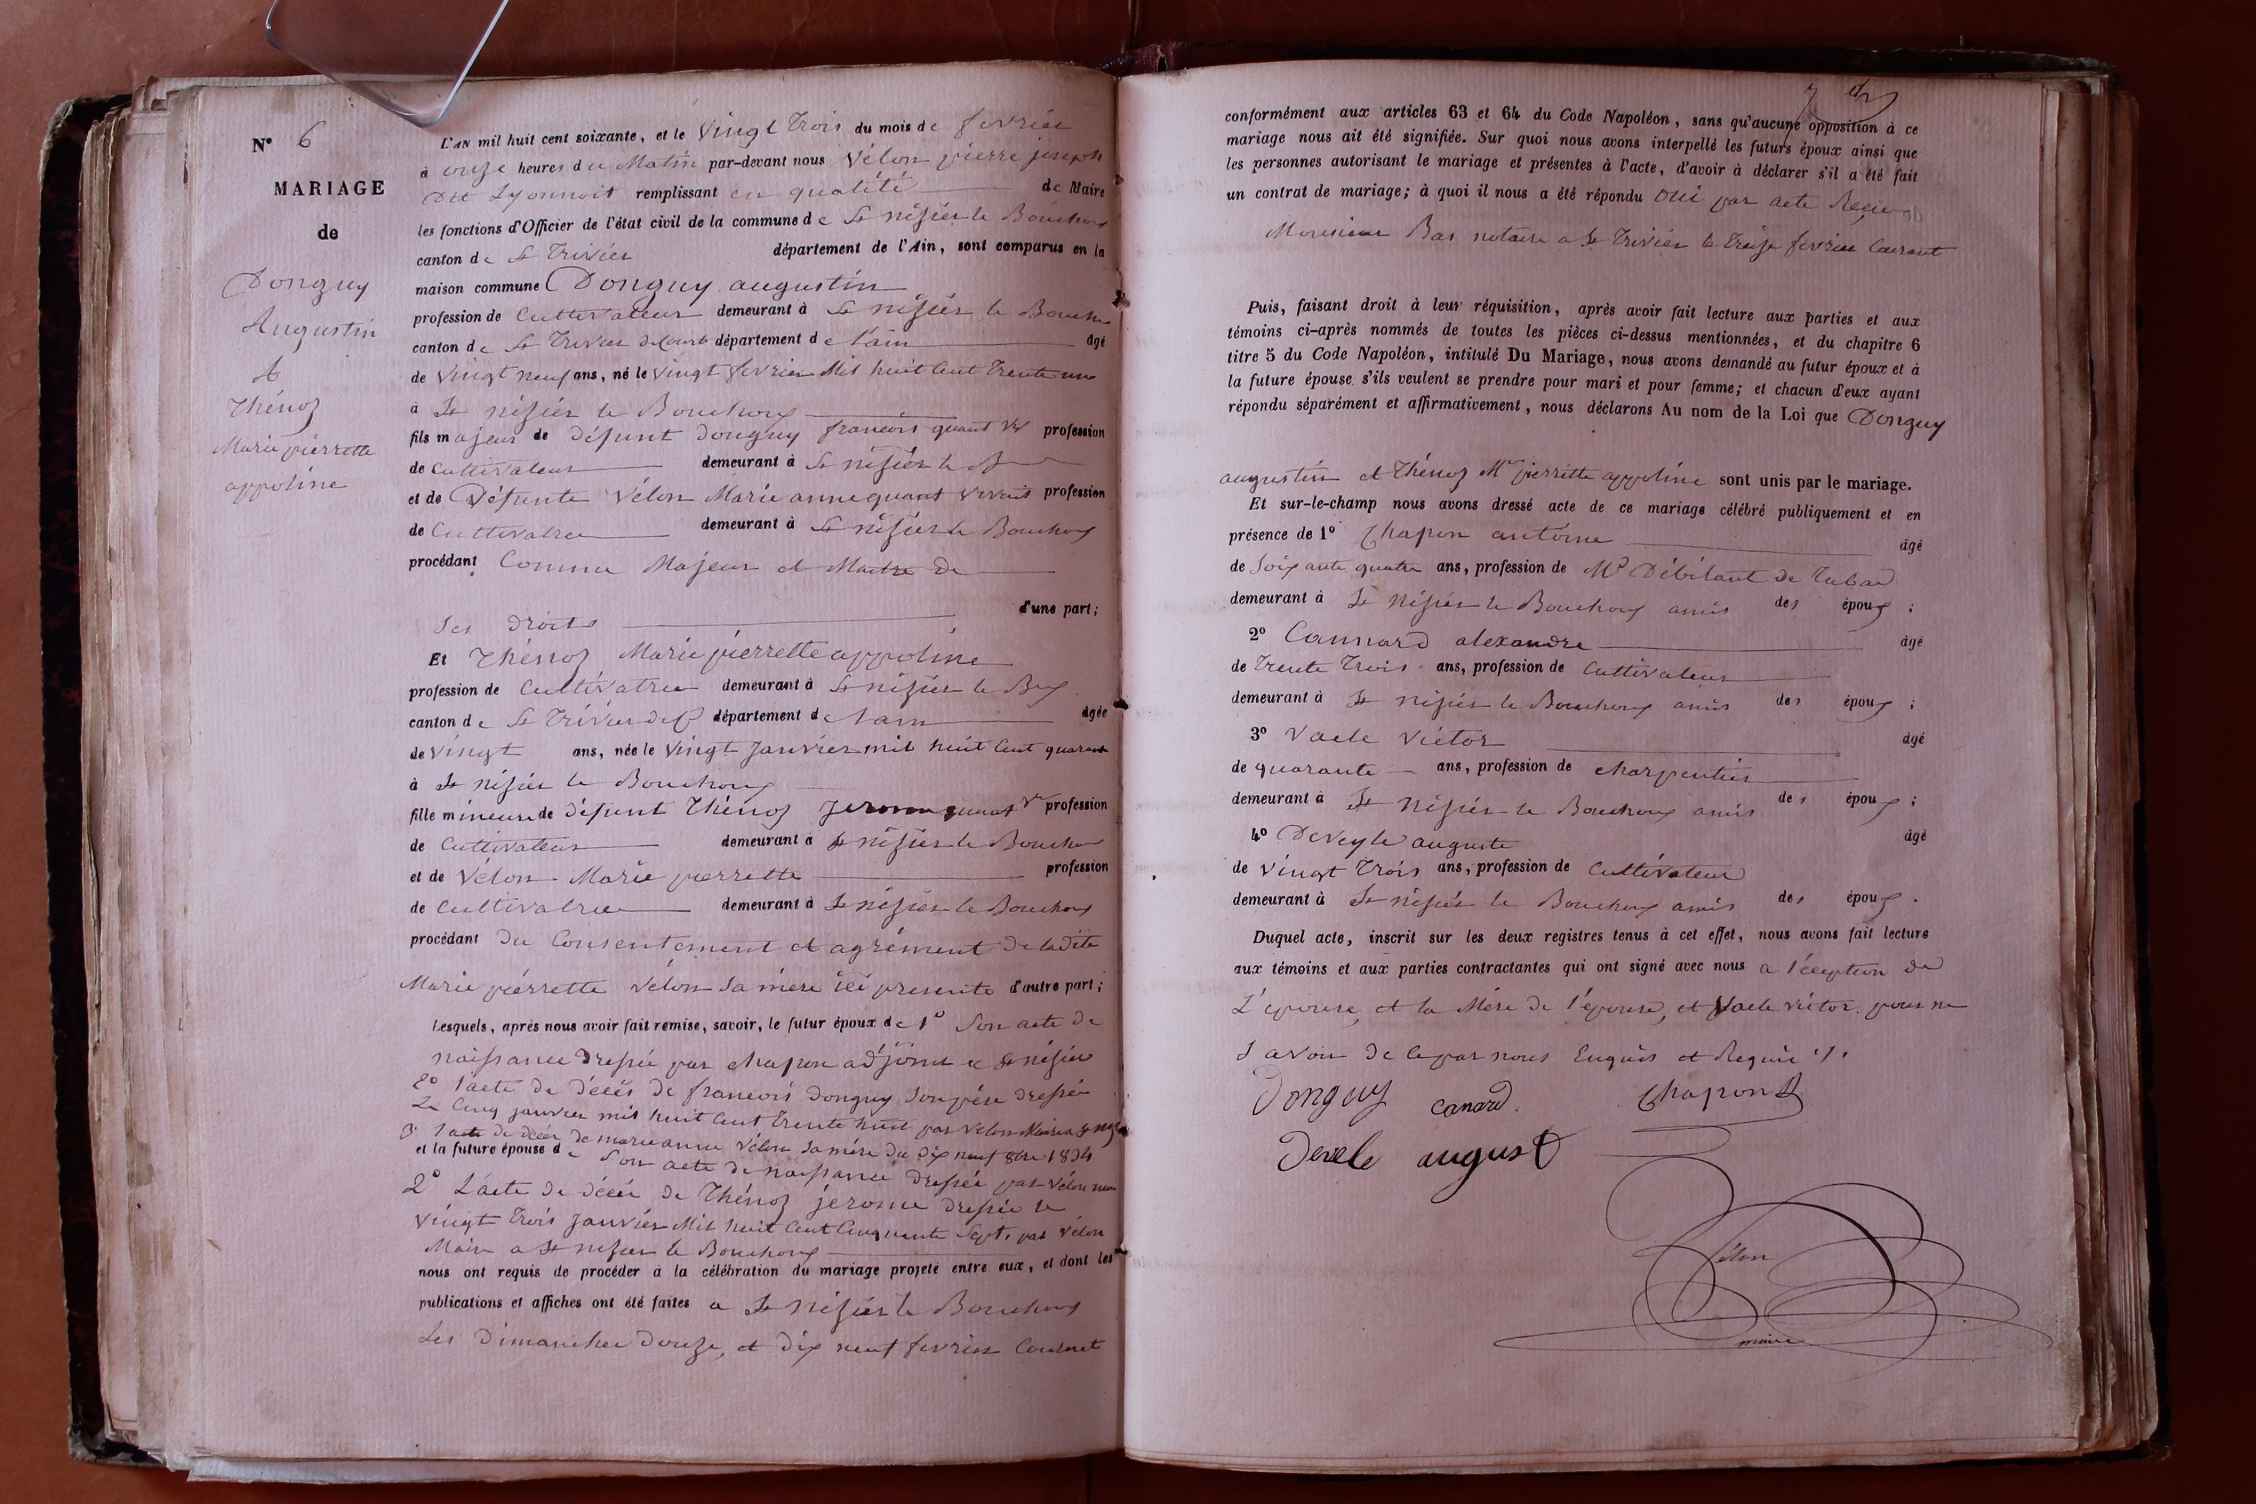 N° 6
MARIAGE
de
Donguy
Augustin
&
Thénoz
Marie pierrette
appoline
L'AN mil huit cent soixante, et le vingt trois du mois de fevrier
à onze heures du Matin par-devant nous Vélon pierre joseph
dit Lyonnoit remplissant en qualité de Maire
les fonctions d'Officier de l'état civil de la commune de St nisier le Bouchoux
canton de St Trivier département de l'Ain, sont comparus en la
maison commune Donguy augustin
profession de Cultivateur demeurant à St nisier le Bouchoux
canton de St Trivier de Courts département de l'ain âgé
de vingt neuf ans, né le vingt fevrier Mil huit Cent Trente un
à St nisier le Bouchoux
fils majeur de défunt Donguy francois quant Vt profession
de Cultivateur demeurant à St nisier le B
et de Défunte Vélon Marie anne quant vivait profession
de Cultivatrice demeurant à St nisier le Bouchoux
procédant Comme Majeur et Maitre de
Ses droits d'une part;
Et Thénoz Marie pierrette appoline
profession de Cultivatrice demeurant à St nisier le Bx
canton de St Trivier de C département de l'ain âgée
de vingt ans, née le vingt Janvier mil huit Cent quarante
à St nisier le Bouchoux
fille mineure de défunt Thénoz Jerome quant Vt profession
de Cultivateur demeurant à St nisier le Bouchoux
et de Vélon Marie pierrette profession
de Cultivatrice demeurant à St nisier le Bouchoux
procédant du Consentement et agrément de ladite
Marie pierrette Vélon Sa mére ici presente d'autre part;
Lesquels, après nous avoir fait remise, savoir, le futur époux de 1° Son acte de
naissance Dressée par chapon adjoint a St nisier
2° l'acte de décès de francois Donguy Son pére Dressée
Le Cinq janvier mil huit Cent Trente huit par Velon Maire a St
3° l'acte de décès de marie anne Vélon Sa mére du Dix neuf 8bre 1834
et la future épouse de Son acte de naissance Dressée par Vélon
2° L'acte de décès de Thénoz jerome Dressée le
vingt Trois Janvier Mil huit Cent Cinquante Sept, par Vélon
Maire a St nisier le Bouchoux
nous ont requis de procéder à la célébration du mariage projeté entre eux, et dont les
publications et affiches ont été faites a St nisier le Bouchoux
Les Dimanches Douze, et Dix neuf fevrier Courant
conformément aux articles 63 et 64 du Code Napoléon, sans qu'aucune opposition à ce
mariage nous ait été signifiée. Sur quoi nous avons interpellé les futurs époux ainsi que
les personnes autorisant le mariage et présentes à l'acte, d'avoir à déclarer s'il a été fait
un contrat de mariage; à quoi il nous a été répondu Oui par acte Reçu
Monsieur Bas notaire a St Trivier le Treize fevrier Courant
Puis, faisant droit à leur réquisition, après avoir fait lecture aux parties et aux
témoins ci-après nommés de toutes les pièces ci-dessus mentionnées, et du chapitre 6
titre 5 du Code Napoléon, intitulé Du Mariage, nous avons demandé au futur époux et à
la future épouse s'ils veulent se prendre pour mari et pour femme; et chacun d'eux ayant
répondu séparément et affirmativement, nous déclarons Au nom de la Loi que Donguy
augustin et Thénoz Mie pierrette appoline sont unis par le mariage.
Et sur-le-champ nous avons dressé acte de ce mariage célébré publiquement et en
présence de 1° Chapon antoine âgé
de Soixante quatre ans, profession de Md Débitant de Tabac
demeurant à St nisier le Bouchoux amis des époux;
2° Cannard alexandre âgé
de Trente Trois ans, profession de Cultivateur
demeurant à St nisier le Bouchoux amis des époux;
3° Vacle Victor âgé
de quarante ans, profession de charpentier
demeurant à St nisier le Bouchoux amis des époux;
4° Deveyle auguste âgé
de vingt Trois ans, profession de Cultivateur
demeurant à St nisier le Bouchoux amis des époux.
Duquel acte, inscrit sur les deux registres tenus à cet effet, nous avons fait lecture
aux témoins et aux parties contractantes qui ont signé avec nous a l'éception de
L'epouse, et la Mére de l'épouse, et Vacle victor pour ne
Savoir de ce par nous Enquis et Requis
Donguy canard Chapon
Devele august
Vélon
maire